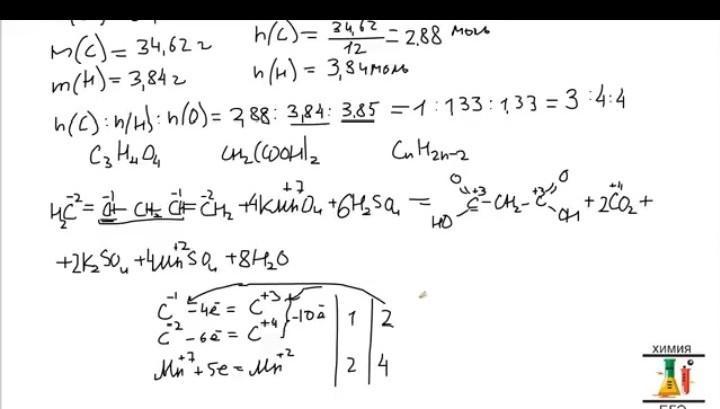 m(C) = 34,62 г n(C) = 34,62/12 = 2.88 моль
m(H) = 3,84 г n(H) = 3,84 моль
n(C) : n(H) : n(O) = 2,88 : 3,84 : 3,85 = 1 : 1,33 : 1,33 = 3 : 4 : 4
C₃H₄O₄ CH₂(COOH)₂ CnH2n-2
H₂C⁻² = CH⁻¹ – CH₂ – CH⁻¹ = CH₂⁻² + 4KMn⁺⁷O₄ + 6H₂SO₄ = O HO C⁺³ – CH₂ – C⁺³ O OH + 2C⁺⁴O₂ +
+ 2K₂SO₄ + 4Mn⁺²SO₄ + 8H₂O
C⁻¹ – 4e̅ = C⁺³ } -10e̅ | 1 | 2
C⁻² – 6e̅ = C⁺⁴
Mn⁺⁷ + 5e = Mn⁺² | 2 | 4
ХИМИЯ